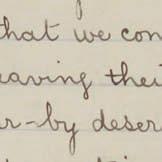 that we con
eaving thei
er-by deser